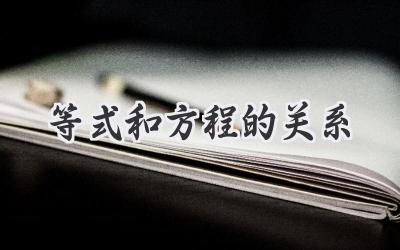 等式和方程的关系